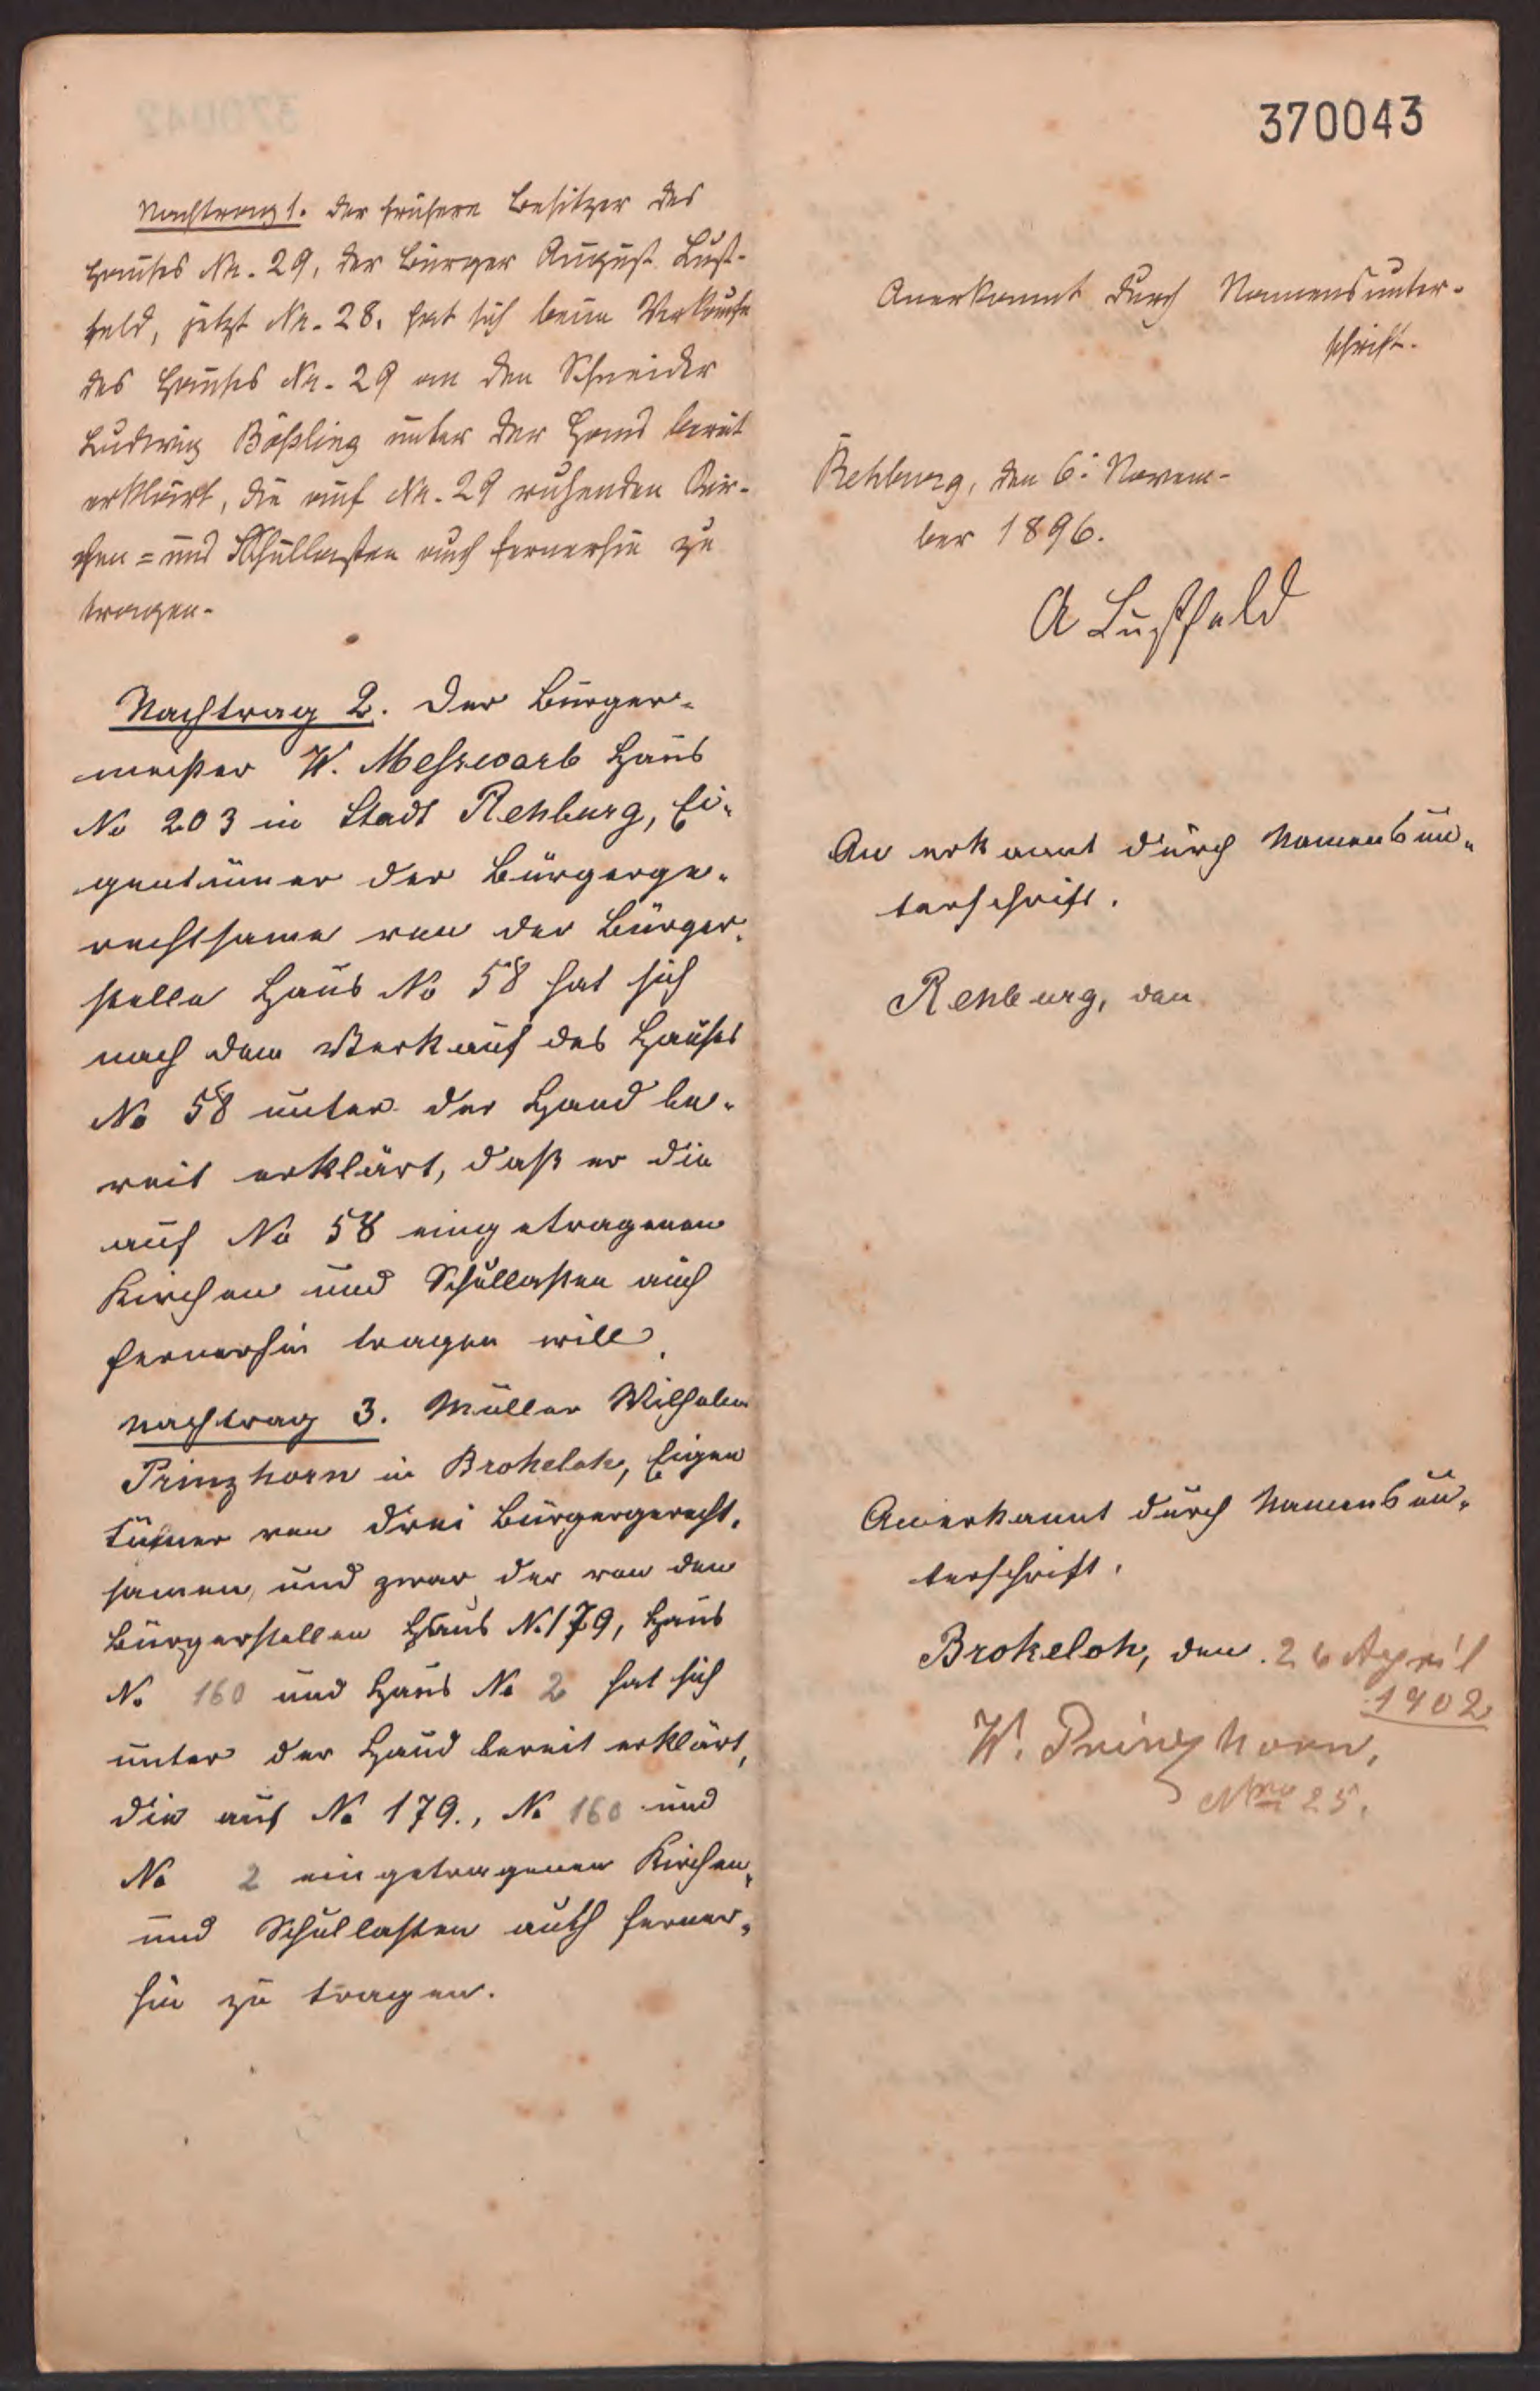 370043
Nachtrag 1. Der frühere Besitzer des
Hauses No. 29, der Bürger August Lust-
feld, jetzt No. 28, hat sich beim Verkaufe
des Hauses No. 29 an den Schneider
Ludwig Bößling unter der Hand bereit
erklärt, die auf No. 29 ruhenden Kir-
chen = und Schullasten auch fernerhin zu
tragen.
Anerkannt durch Namensunter-
schrift.
Rehburg, den 6. Novem-
ber 1896.
A Lustfeld
Nachtrag 2. Der Bürger-
meister W. Messwarb Haus
No 203 in Stadt Rehburg, Ei-
gentümer der Bürgerge-
rechtsame von der Bürger-
stelle Haus No 58 hat sich
nach dem Verkauf des Hauses
No 58 unter der Hand be-
reit erklärt, daß er die
auf No 58 eingetragenen
Kirchen und Schullasten auch
fernerhin tragen will.
Anerkannt durch Namensun-
terschrift.
Rehburg, den
Nachtrag 3. Müller Wilhelm
Prinzhorn in Brokeloh, Eigen
tümer von drei Bürgergerecht-
samen, und zwar der von den
Bürgerstellen Haus No 179, Haus
No 160 und Haus No 2 hat sich
unter der Hand bereit erklärt,
die auf No 179., No 160 und
No 2 eingetragenen Kirchen-
und Schullasten auch ferner-
hin zu tragen.
Anerkannt durch Namensun-
terschrift.
Brokeloh, den 26 April
1902
W. Prinzhorn,
Nro 25.